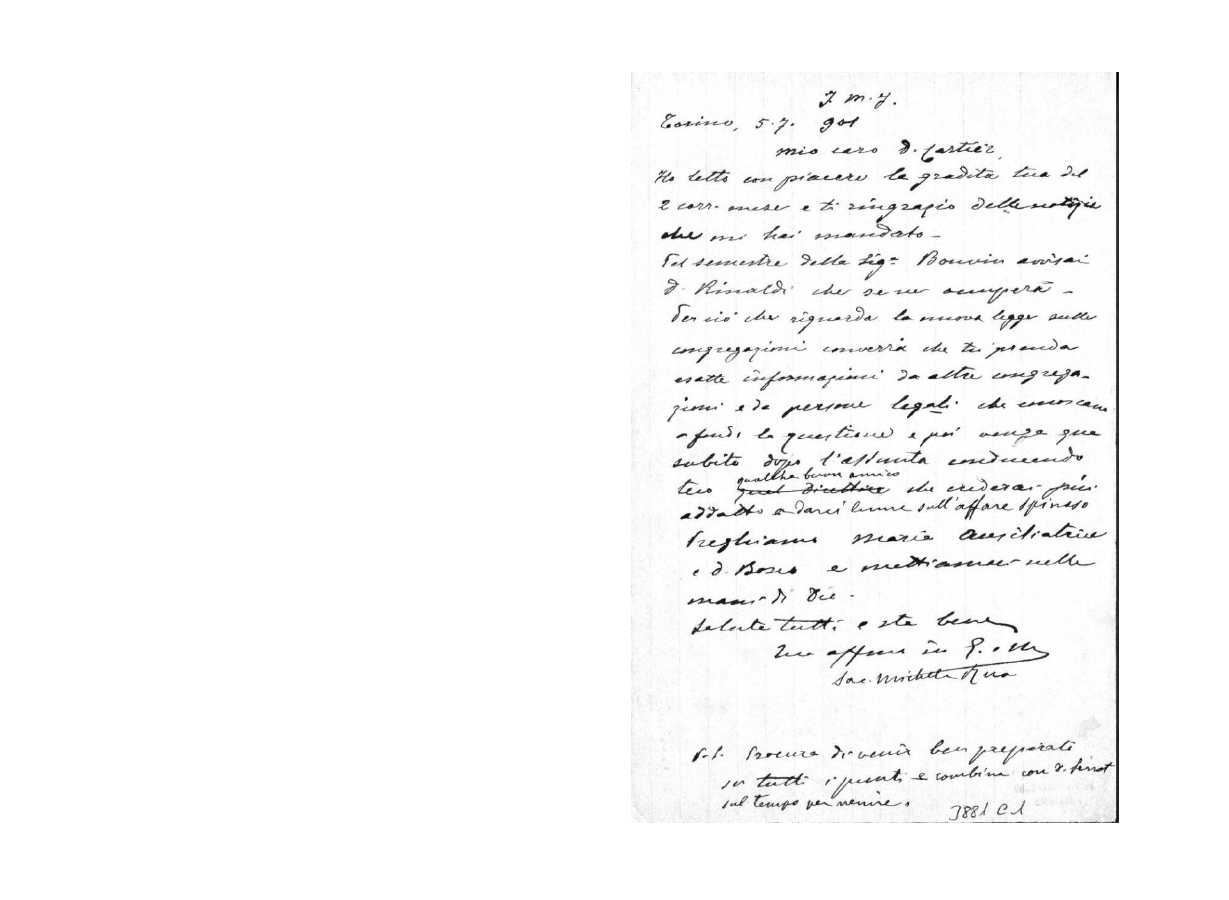 J. M. J.
Torino, 5-7. 901
Mio caro D. Cartier,
Ho letto con piacere la gradita tua del
2 corr. mese e ti ringrazio delle notizie
che mi hai mandato -
Pel semestre della Sig.ª Bouvin avvisai
D. Rinaldi che se ne occuperà -
Per ciò che riguarda la nuova legge sulle
congregazioni converrà che tu prenda
esatte informazioni da altre congrega-
zioni e da persone legali che conoscano
a fondo la questione e poi venga qua
subito dopo l'Assunta conducendo
qualche buon amico
teco quel direttore che crederai più
addatto a darci lume sull'affare spinoso
Preghiamo Maria Ausiliatrice
e D. Bosco e mettiamoci nelle
mani di Dio.
Saluta tutti e sta bene
Tuo affmo in G. e M.
Sac. Michele Rua
P.S. Procura di venir ben preparato
su tutti i punti e combina con D. Perrot
sul tempo per venire.
3881 C 1